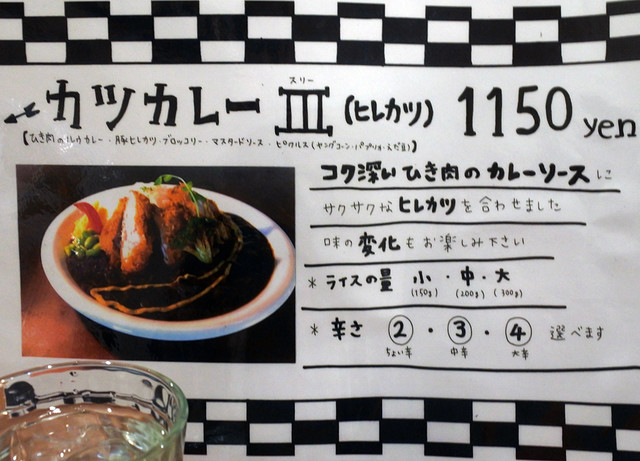 スリー
カツカレーⅢ(ヒレカツ) 1150 yen
【ひき肉のルウカレー・豚ヒレカツ・ブロッコリー・マスタードソース・ピクルス(ヤングコーン・パプリカ・えだ豆)】
コク深いひき肉のカレーソースに
サクサクなヒレカツを合わせました
味の変化もお楽しみ下さい
*ライスの量 小・中・大
(150g) (200g) (300g)
*辛さ ②・③・④ 選べます
ちょい辛 中辛 大辛